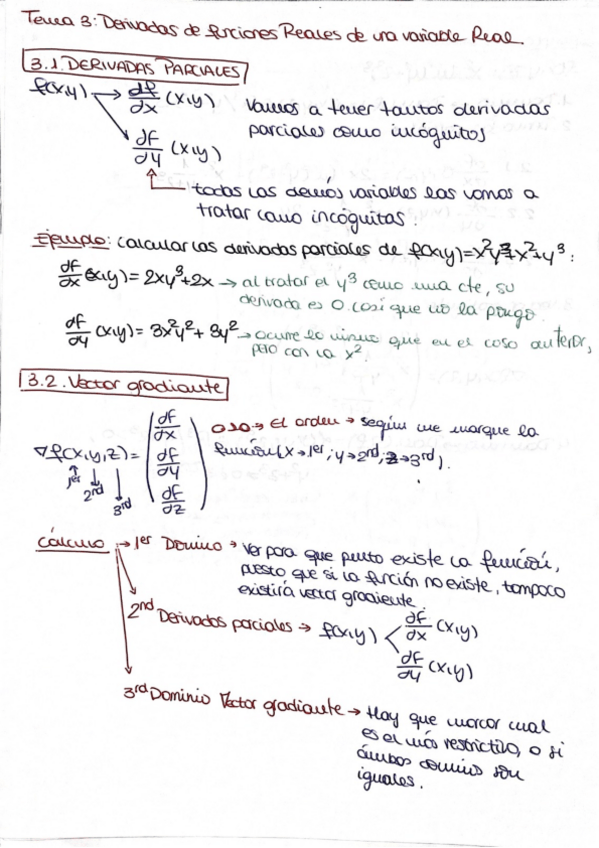 Tema 3: Derivadas de funciones Reales de una variable Real.
3.1 DERIVADAS PARCIALES
f(x,y) → df/dx (x,y) Vamos a tener tantas derivadas
parciales como incógnitas
df/dy (x,y)
todas las demás variables las vamos a
tratar como incógnitas.
Ejemplo: Calcular las derivadas parciales de f(x,y)=x²y³+x²+y³:
df/dx (x,y) = 2xy³+2x → al tratar el y³ como una cte, su
derivada es 0 así que no la pongo.
df/dy (x,y) = 3x²y²+3y² → ocurre lo mismo que en el caso anterior,
pero con la x².
3.2. Vector gradiante
∇f(x,y,z) = (df/dx df/dy df/dz) OJO → El orden → según me marque la
función (x→1er; y→2nd; z→3rd).
1er
2nd
3rd
Cálculo → 1er Domino → Ver para que punto existe la función,
puesto que si la función no existe, tampoco
existirá vector gradiente.
2nd Derivadas parciales → f(x,y) < df/dx (x,y)
df/dy (x,y)
3rd Dominio Vector gradiante → Hay que marcar cual
es el más restrictivo, o si
ámbos dominios son
iguales.